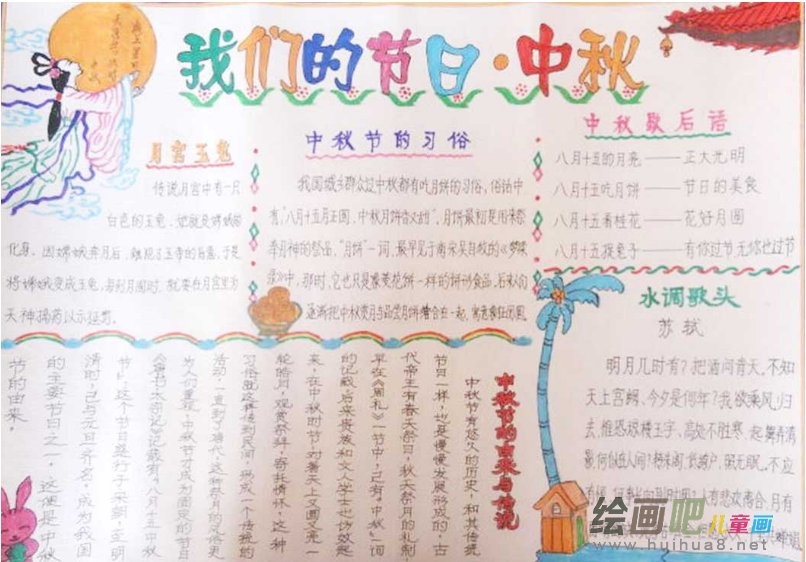 我们的节日·中秋
月宫玉兔
传说月宫中有一只
白色的玉兔，她就是嫦娥的
化身。因嫦娥奔月后，触犯了玉帝的旨意，于是
将嫦娥变成玉兔，每到月圆时，就要在月宫里为
天神捣药以示惩罚。
中秋节的习俗
我国城乡群众过中秋都有吃月饼的习俗，俗话中
有“八月十五月正圆，中秋月饼香又甜”。月饼最初是用来祭
奉月神的祭品，“月饼”一词，最早见于南宋吴自牧的《梦粱
录》中，那时，它也只是像菱花饼一样的饼形食品。后来人们
逐渐把中秋赏月与品尝月饼结合在一起，寓意家人团圆。
中秋歇后语
八月十五的月亮——正大光明
八月十五吃月饼——节日的美食
八月十五看桂花——花好月圆
八月十五捉兔子——有你过节无你也过节
水调歌头
苏轼
明月几时有？把酒问青天。不知
天上宫阙，今夕是何年？我欲乘风归
去，惟恐琼楼玉宇，高处不胜寒。起舞弄清
影，何似在人间？转朱阁，低绮户，照无眠。不应
有悲欢离合，月有
中秋节的由来与传说
中秋节有悠久的历史，和其传统
节日一样，也是慢慢发展形成的，古
代帝王有春天祭日，秋天祭月的礼制，
早在《周礼》一书中，已有“中秋”一词
的记载。后来贵族和文人学士也仿效起
来，在中秋时节，对着天上又圆又亮一
轮皓月，观赏祭拜，寄托情怀，这种
习俗就这样传到民间，形成一个传统的
活动，一直到了唐代，这种祭月的风俗更
为人们重视，中秋节才成为固定的节日
，《唐书·太宗记》记载有“八月十五中秋
节”，这个节日盛行于宋朝，至明
清时，已与元旦齐名，成为我国
的主要节日之一。这便是中秋
节的由来。
绘画吧儿童画
www.huihua8.net